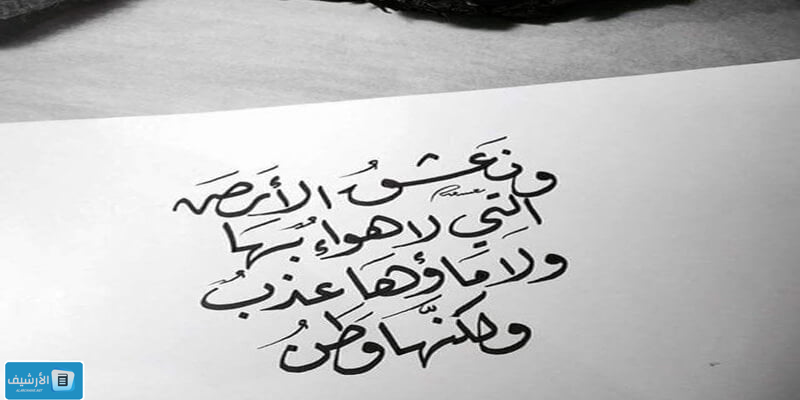 ونَعَشقُ الأرَضَ
التي لا هواءِ بُهَا
ولَا مَاؤهَا عذبُ
ولكنَّهَا وَطَنُ
الأرشيف